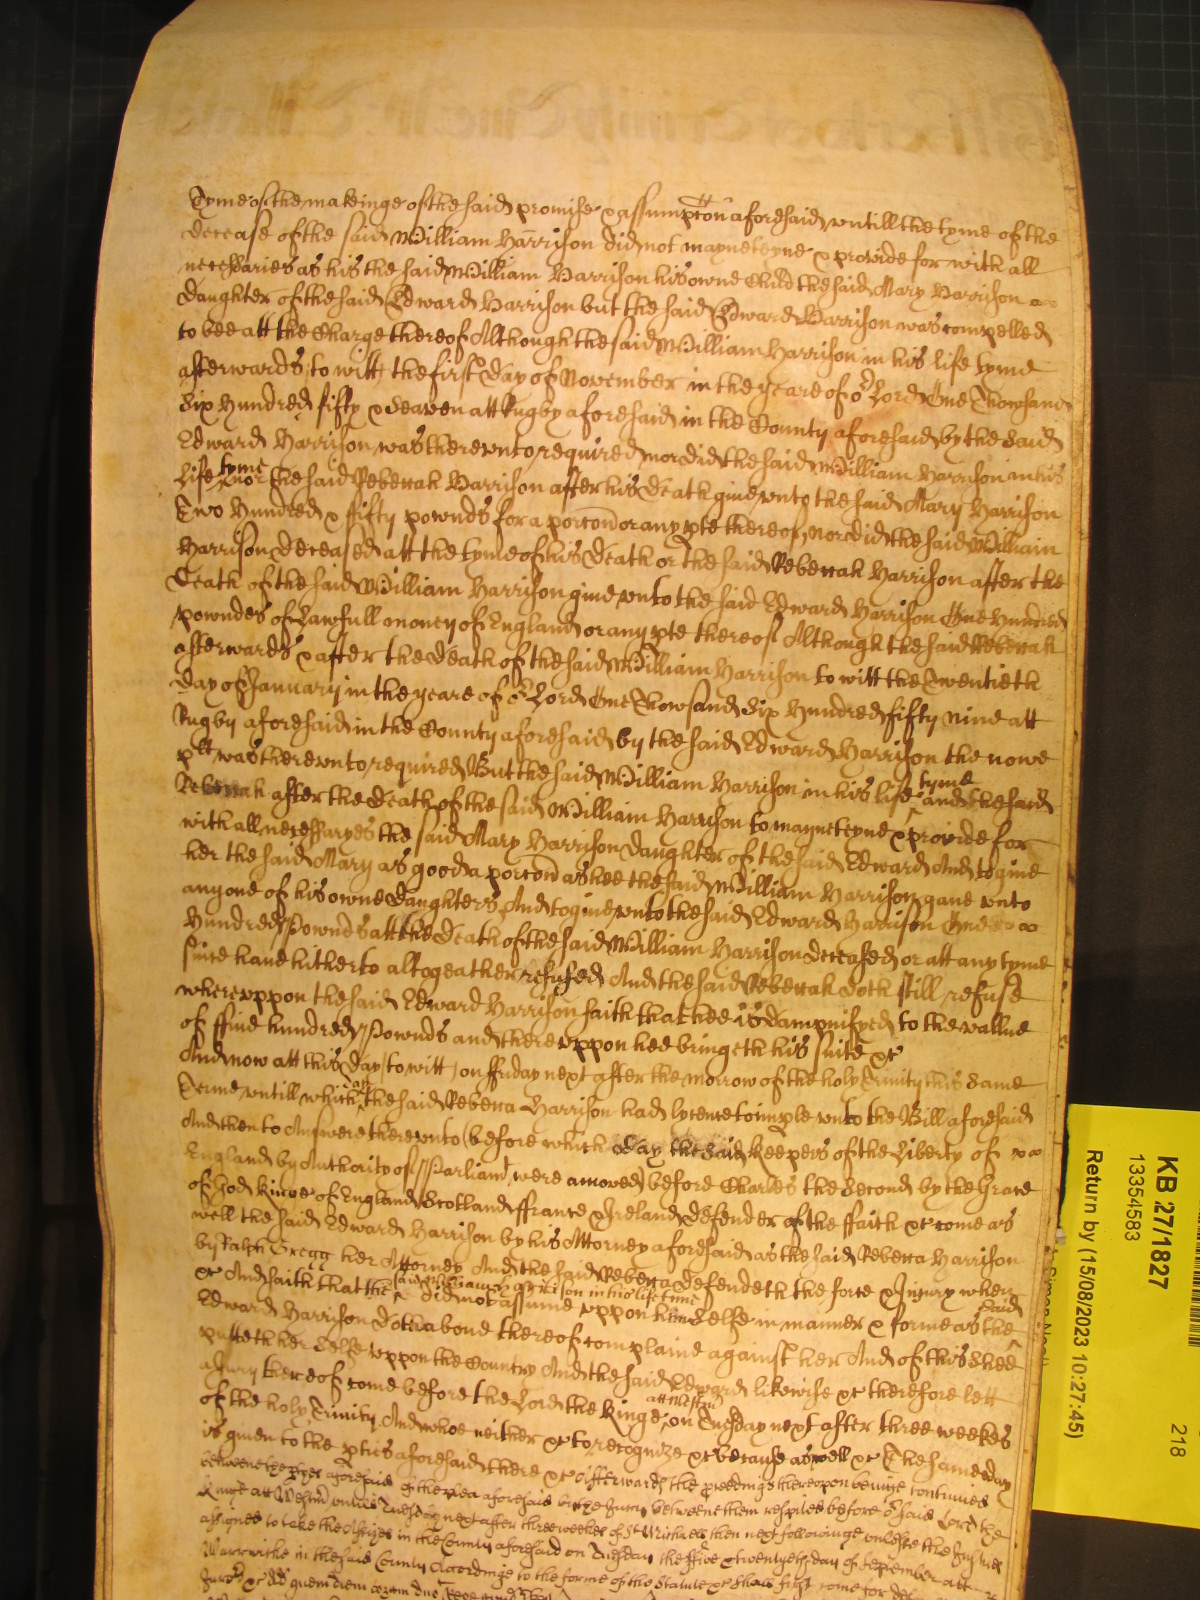 Tyme of the makeinge of the said promise & assumpcon aforesaid untill the tyme of the
decease of the said William Harrison did not mayneteyne & provide for with all
necessaries as his the said William Harrison his owne Child the said Mary Harrison
daughter of the said Edward Harrison but the said Edward Harrison was compelled
to bee att the Charge thereof Although the said William Harrison in his life tyme
afterwards to witt the first day of November in the yeare of or Lord One Thowsand
Six Hundred fifty & Seaven att Rugby aforesaid in the County aforesaid by the said
Edward Harrison was thereunto required nor did the said William Harrison in his
life tyme nor the said Rebeccah Harrison after his death give unto the said Mary Harrison
Two Hundred & fifty pownds for a porcon or any pte thereof, nor did the said William
Harrison deceased att the tyme of his death or the said Rebeccah Harrison after the
death of the said William Harrison give unto the said Edward Harrison One Hundred
powndes of Lawfull money of England or any pte thereof Although the said Rebeccah
afterwards & after the death of the said William Harrison to witt the Twentieth
day of January in the yeare of or Lord One Thowsand Six Hundred fifty nine att
Rugby aforesaid in the County aforesaid by the said Edward Harrison the nowe
plt was thereunto required But the said William Harrison in his life tyme and the said
Rebeccah after the death of the said William Harrison to mayneteyne & provide for
with all necessaryes the said Mary Harrison daughter of the said Edward And to give
her the said Mary as good a porcon as hee the said William Harrison gave unto
any one of his owne daughters And to give unto the said Edward Harrison One
Hundred Pownds att the death of the said William Harrison deceased or att any tyme
since have hitherto altogeather refused And the said Rebeccah doth still refuse
whereuppon the said Edward Harrison saith that hee is dampnifyed to the vallue
of ffive hundred Pownds and thereuppon hee bringeth his suite &c
And now att this day to witt on ffriday next after the morrow of the holy Trinity this same
Terme untill which day the said Rebecca Harrison had lycence to imple unto the Bill aforesaid
And then to Answere thereunto (before which day the said Keepers of the Liberty of
England by Authority of Parliamt were amoved) before Charles the Second by the Grace
of God Kinge of England Scotland ffrance & Ireland defender of the ffaith &c come as
well the said Edward Harrison by his Attorney aforesaid as the said Rebecca Harrison
by Ralph Gregg her Attorney And the said Rebecca defendeth the force & Injury when
&c And saith that the said William Harrison in his life time did not assume uppon himselfe in manner & forme as the said
Edward Harrison doth above thereof complaine against her And of this Shee
putteth her selfe uppon the Country And the said Edward likewise &c therefore lett
a Jury thereof come before the Lord the Kinge att Westmr on Tuesday next after three weekes
of the holy Trinity And whoe neither &c to recognize &c because aswell &c The same day
is given to the pties aforesaid there &c Afterwards the proceedings thereupon beinge continued
betweene the ptyes aforesaid of the plea aforesaid by the Jury betweene them respited before or said Lord the
Kinge att Westmr untill Tuesday next after three weekes of St Michael then next followinge unlesse the Justices
assigned to take the Assizes in the County aforesaid on Tuesday the ffive & twentyeth day of September att
Warrwicke in the said County Accordinge to the forme of the Statute &c shall first come for def
Juror &c Ad quem diem coram
KB 27/1827
13354583
218
Return by (15/08/2023 10:27:45)